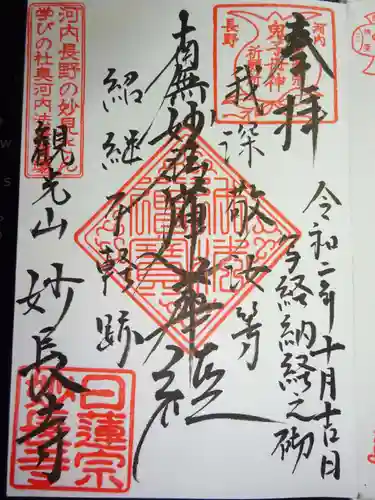 奉拝
令和二年十月吉日
写経納経之砌
河内
鬼子母神
祈祷所
長野
我深敬汝等
南無妙法蓮華経
紹継不軽跡
河内長野の妙見さん
学びの杜奥河内
観光山 妙長寺
日蓮宗
妙長寺